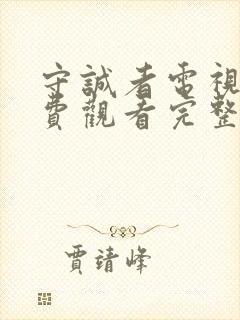 守誠者電視
費觀看完整
賈靖峰